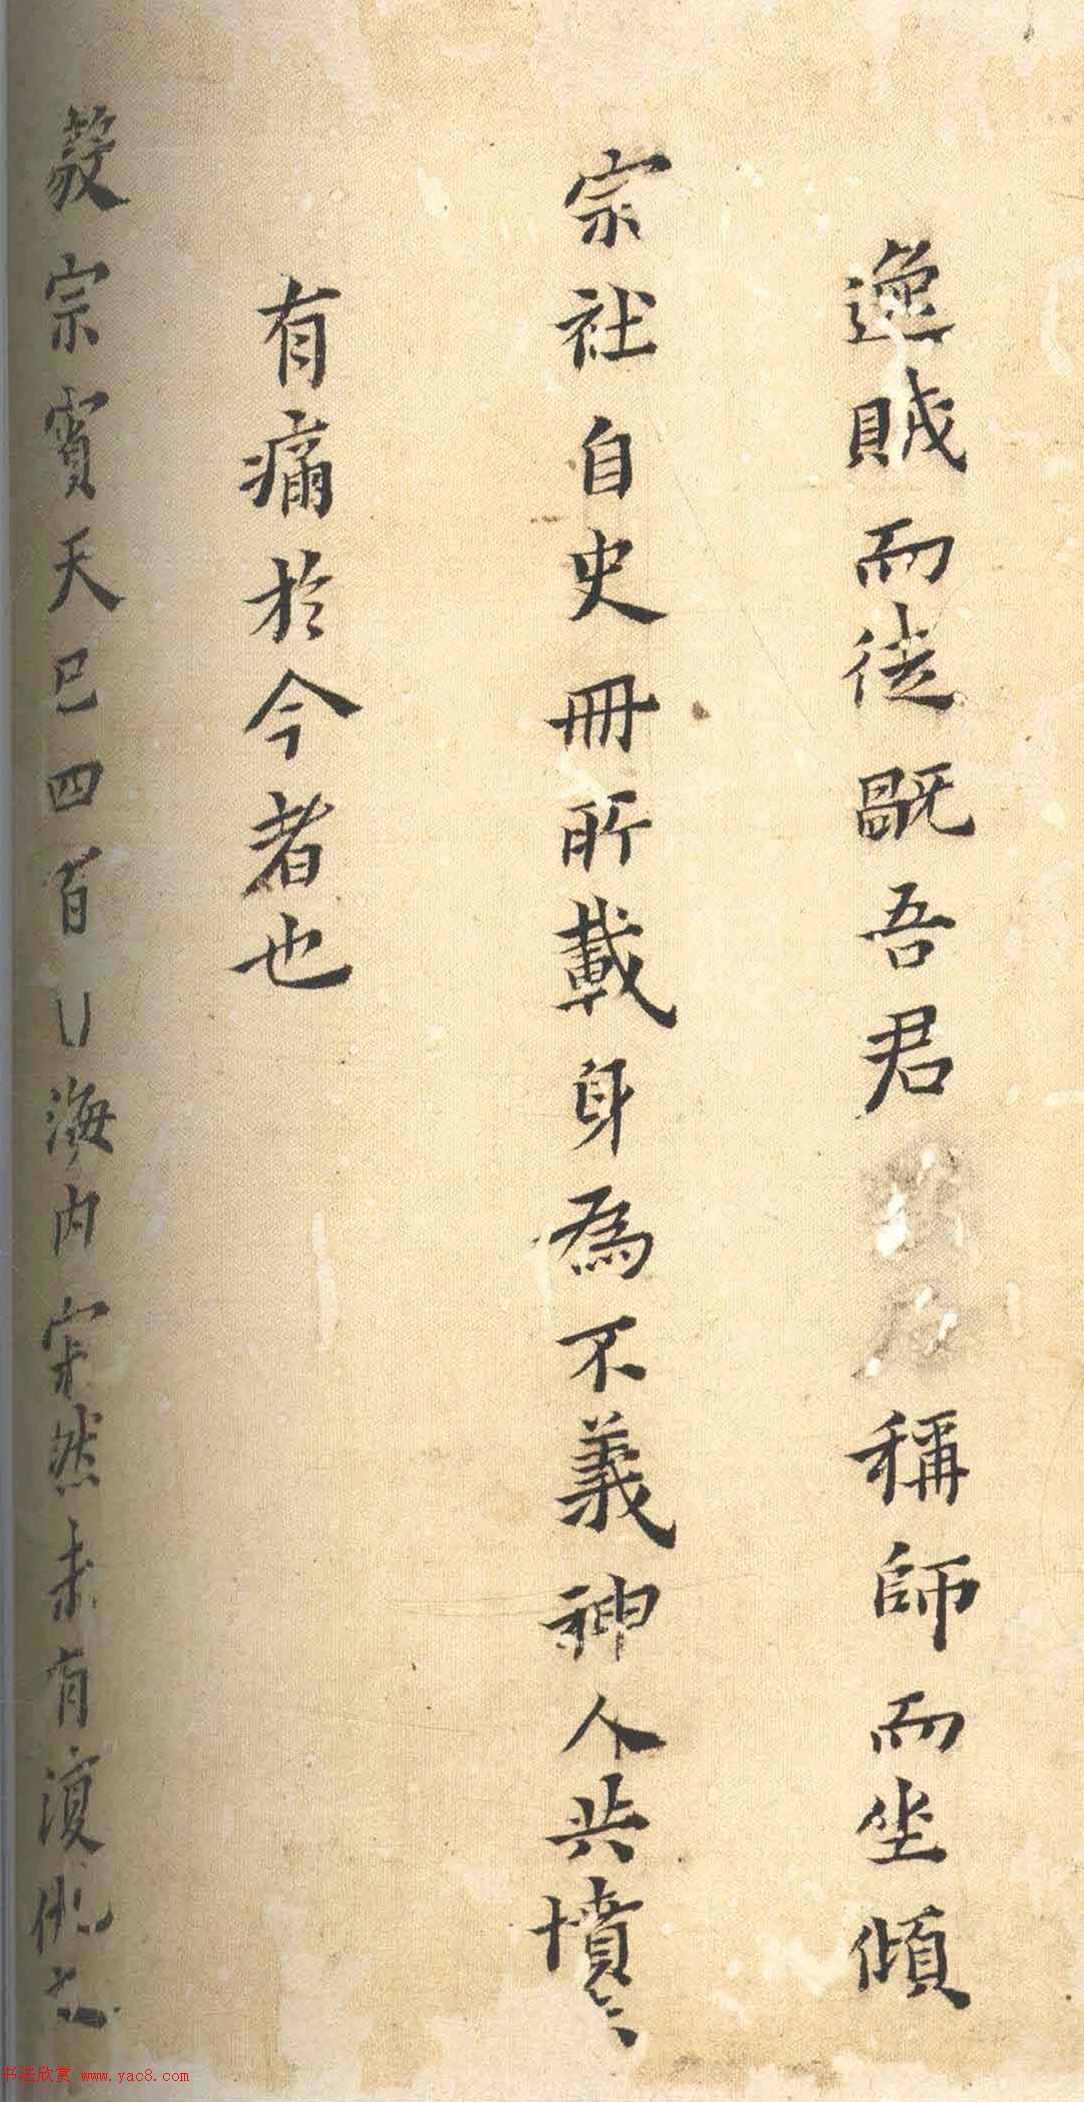 逸賊而徒翫吾君稱師而坐傾
宗社自史冊所載身為不義神人共憤
有痛於今者也
敬宗賓天已四百日海内宋然未有復仇之
书法欣赏 www.yac8.com